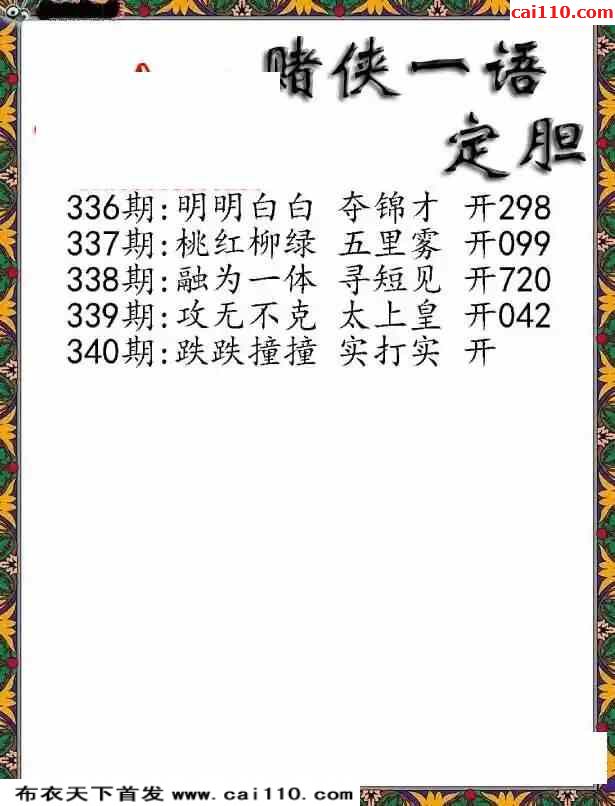 cai110.com
赌侠一语
定胆
336期:明明白白 夺锦才 开298
337期:桃红柳绿 五里雾 开099
338期:融为一体 寻短见 开720
339期:攻无不克 太上皇 开042
340期:跌跌撞撞 实打实 开
布衣天下首发 www.cai110.com